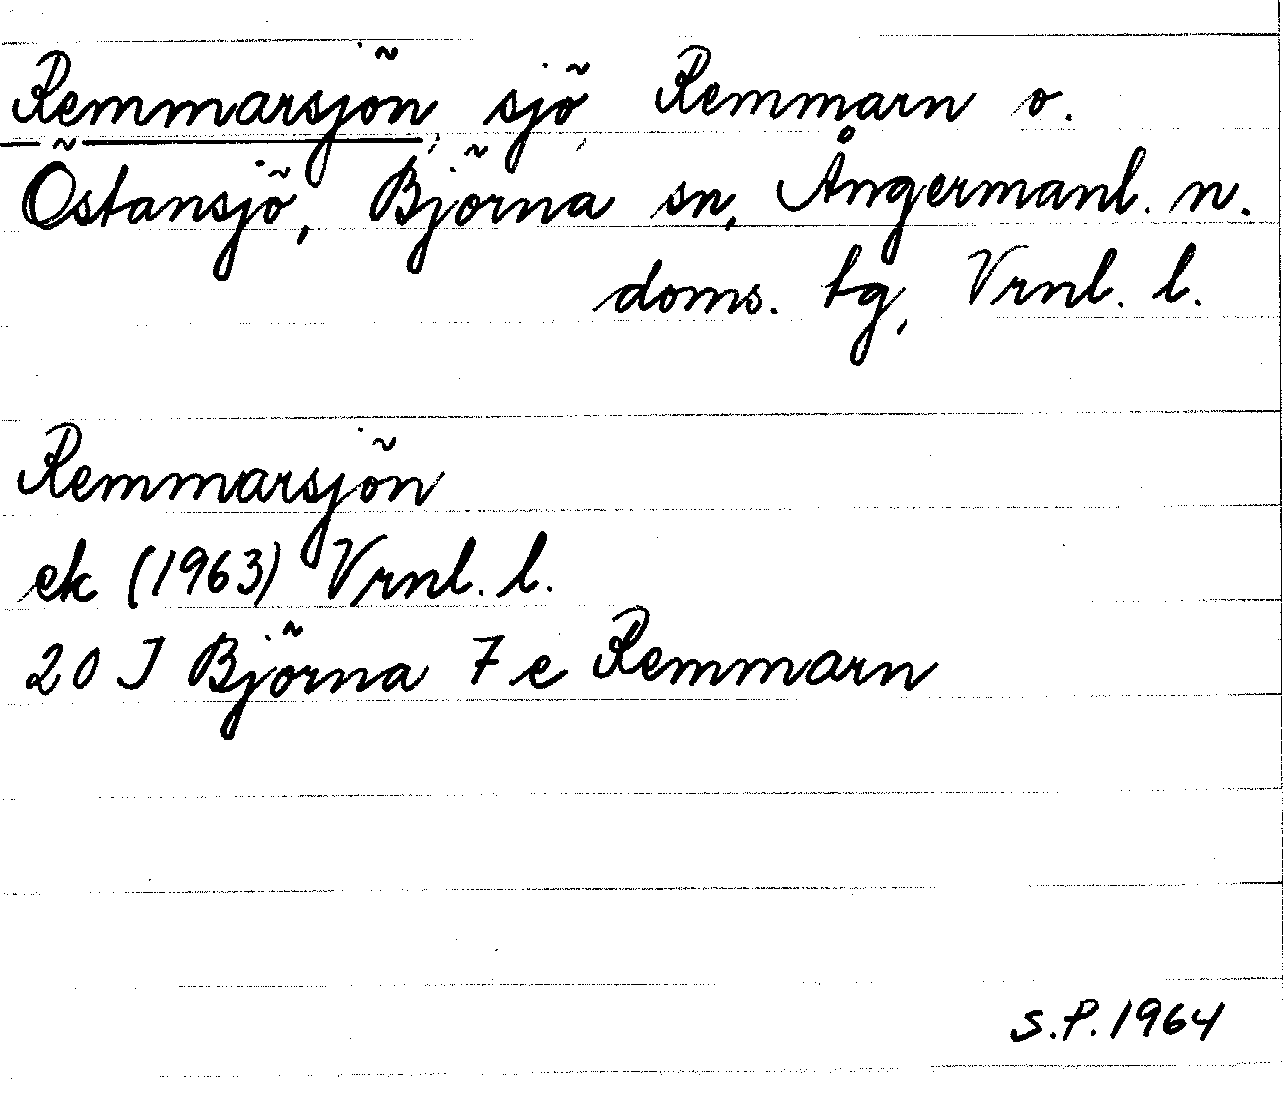 Remmarsjön, sjö, Remmarn o.
Östansjö, Björna sn, Ångermanl. n.
doms. tg, Vrnl. l.
Remmarsjön
ek (1963) Vrnl. l.
20 I Björna 7 e Remmarn
S.P. 1964